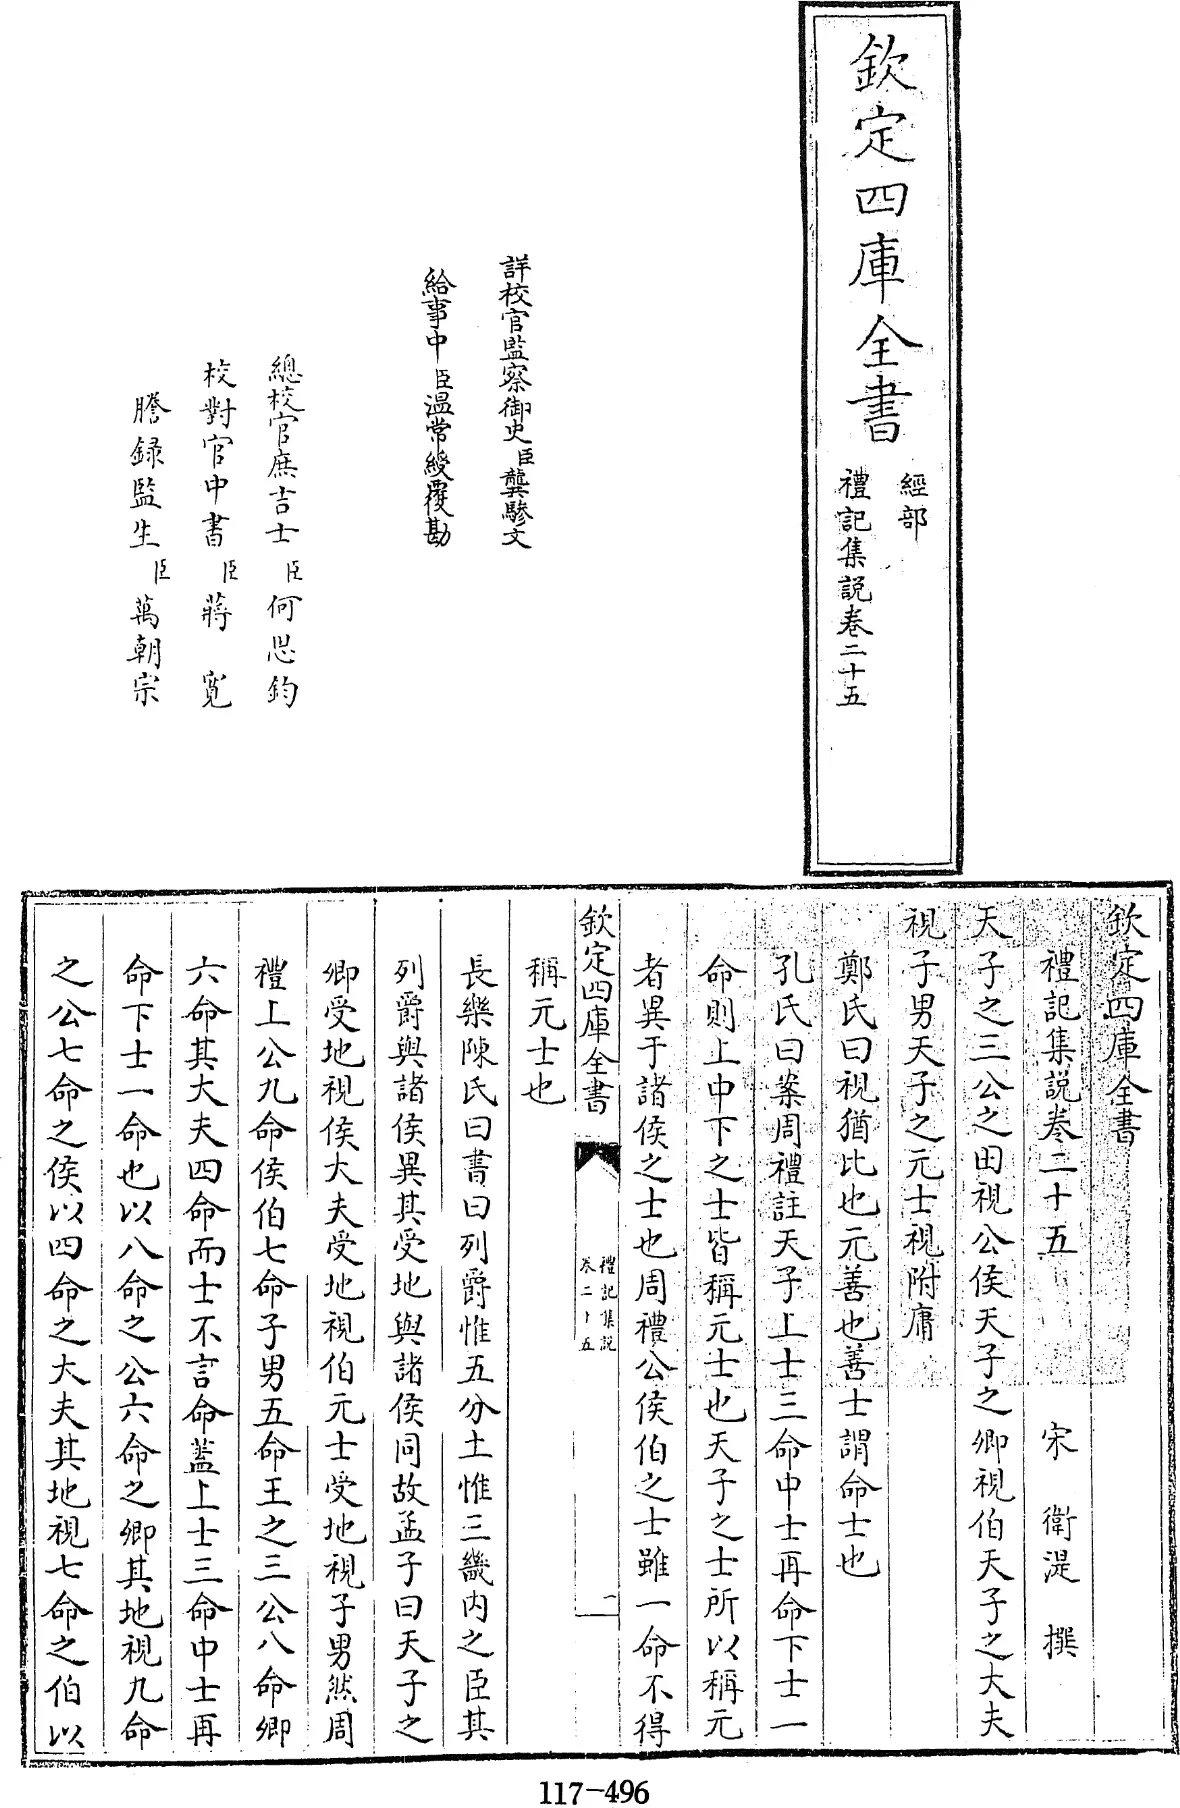 欽定四庫全書
經部
禮記集說卷二十五
詳校官監察御史臣龔驂文
給事中臣溫常綬覆勘
總校官庶吉士臣何思鈞
校對官中書臣蔣寬
謄錄監生臣萬朝宗
欽定四庫全書
禮記集說卷二十五
宋 衛湜 撰
天子之三公之田視公侯天子之卿視伯天子之大夫
視子男天子之元士視附庸
鄭氏曰視猶比也元善也善士謂命士也
孔氏曰案周禮註天子上士三命中士再命下士一
命則上中下之士皆稱元士也天子之士所以稱元
者異于諸侯之士也周禮公侯伯之士雖一命不得
欽定四庫全書
禮記集說
卷二十五
一
稱元士也
長樂陳氏曰書曰列爵惟五分土惟三畿内之臣其
列爵與諸侯異其受地與諸侯同故孟子曰天子之
卿受地視侯大夫受地視伯元士受地視子男然周
禮上公九命侯伯七命子男五命王之三公八命卿
六命其大夫四命而士不言命蓋上士三命中士再
命下士一命也以八命之公六命之卿其地視九命
之公七命之侯以四命之大夫其地視七命之伯以
117-496